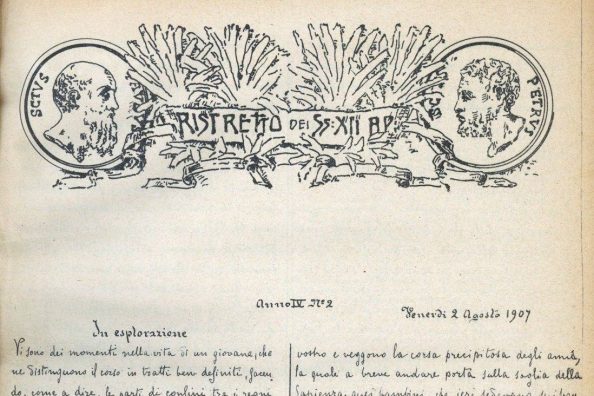 SCTVS
RISTRETTO DEI SS: XII AP.
PETRVS
Anno IV Nº 2
Venerdì 2 Agosto 1907
In esplorazione
Vi sono dei momenti nella vita di un giovane, che
ne distinguono il corso in tratti ben definiti, facen
do, come a dire, le parti di confini tra i regni
vostro e veggono la corsa precipitosa degli anni,
la quale a breve andare porta sulla soglia della
Sapienza quei bambini, che ieri